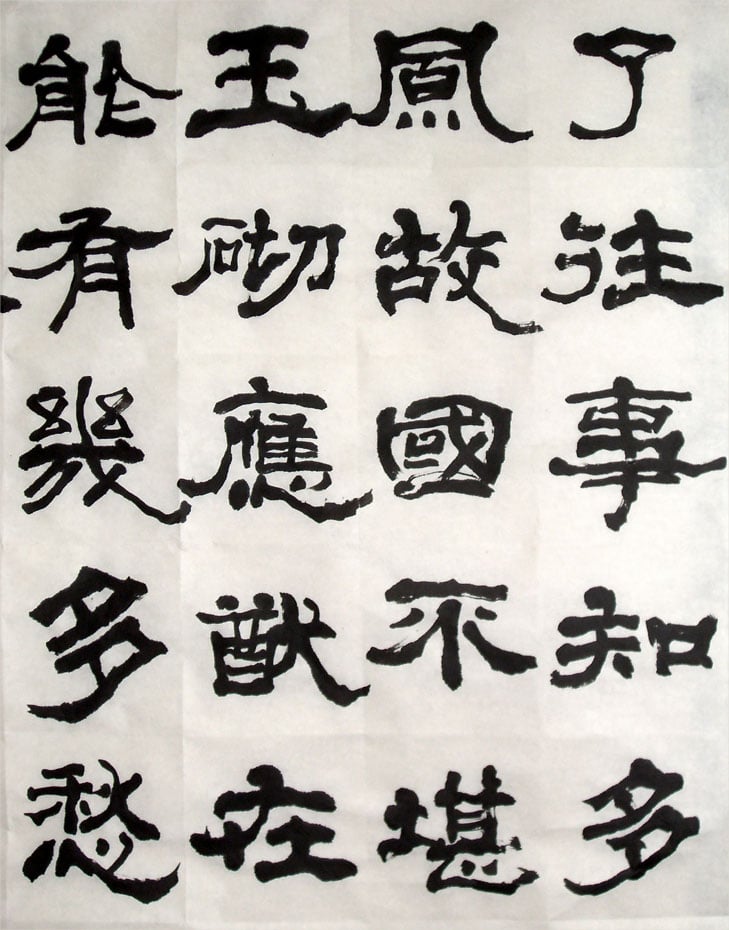 了往事知多
風故國不堪
玉砌應猷在
能有幾多愁